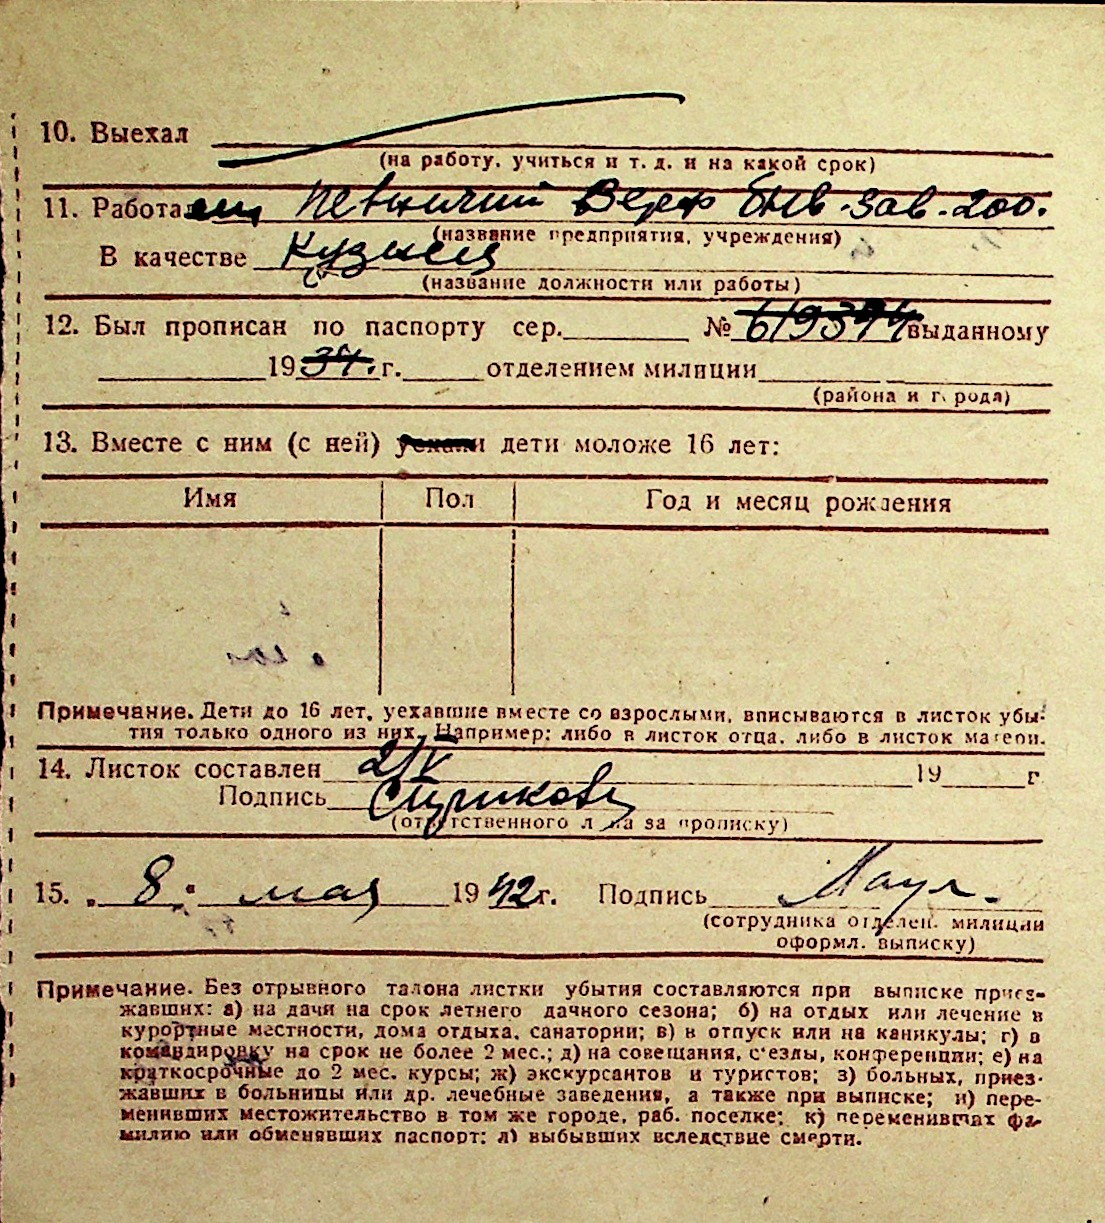 10. Выехал
(на работу, учиться и т. д. и на какой срок)
11. Работал Певничий Верф быв. зав. 200.
(название предприятия, учреждения)
В качестве Кузнец
(название должности или работы)
12. Был прописан по паспорту сер. № 619374 выданному
1934. г. отделением милиции
(района и города)
13. Вместе с ним (с ней) уехали дети моложе 16 лет:
Имя Пол Год и месяц рождения
Примечание. Дети до 16 лет, уехавшие вместе со взрослыми, вписываются в листок убы-
тия только одного из них. Например: либо в листок отца, либо в листок матери.
14. Листок составлен 2/V 19 г
Подпись
(ответственного лица за прописку)
15. „ 8 " мая 1942 г. Подпись
(сотрудника отделен. милиции
оформл. выписку)
Примечание. Без отрывного талона листки убытия составляются при выписке приез-
жавших: а) на дачи на срок летнего дачного сезона; б) на отдых или лечение в
курортные местности, дома отдыха, санатории; в) в отпуск или на каникулы; г) в
командировку на срок не более 2 мес.; д) на совещания, с'езды, конференции; е) на
краткосрочные до 2 мес. курсы; ж) экскурсантов и туристов; з) больных, приез-
жавших в больницы или др. лечебные заведения, а также при выписке; и) пере-
менивших местожительство в том же городе, раб. поселке; к) переменивших фа-
милию или обменявших паспорт; л) выбывших вследствие смерти.